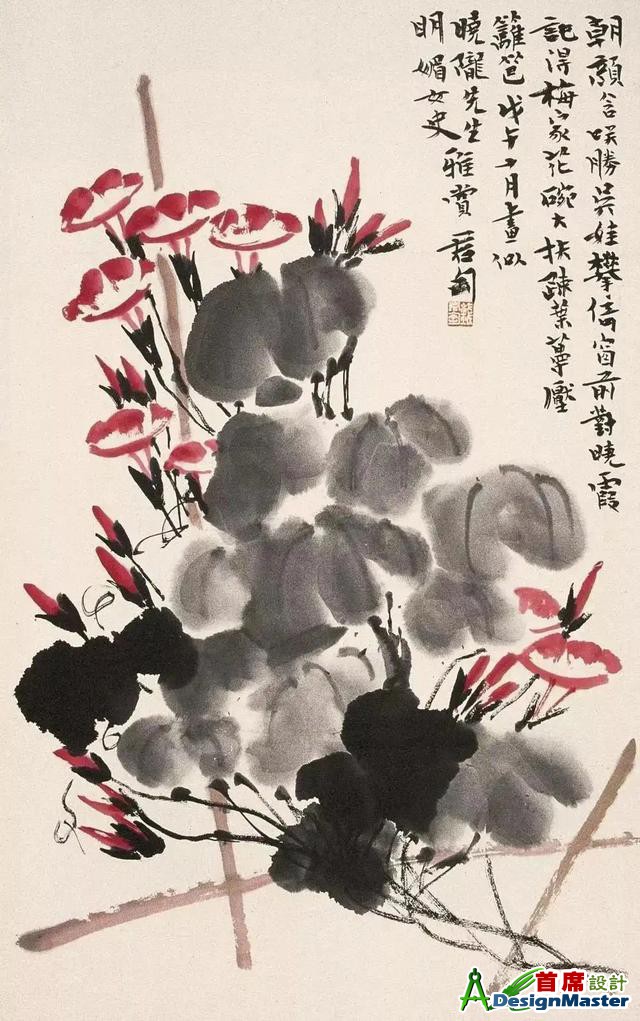 朝顏含咲勝吳娃攀倚窗前對曉霞
記得梅家花碗大扶疎葉蔓壓
籬笆戊午月畫似
曉隴先生
明媚女史
雅賞 君匋
首席設計
DesignMaster